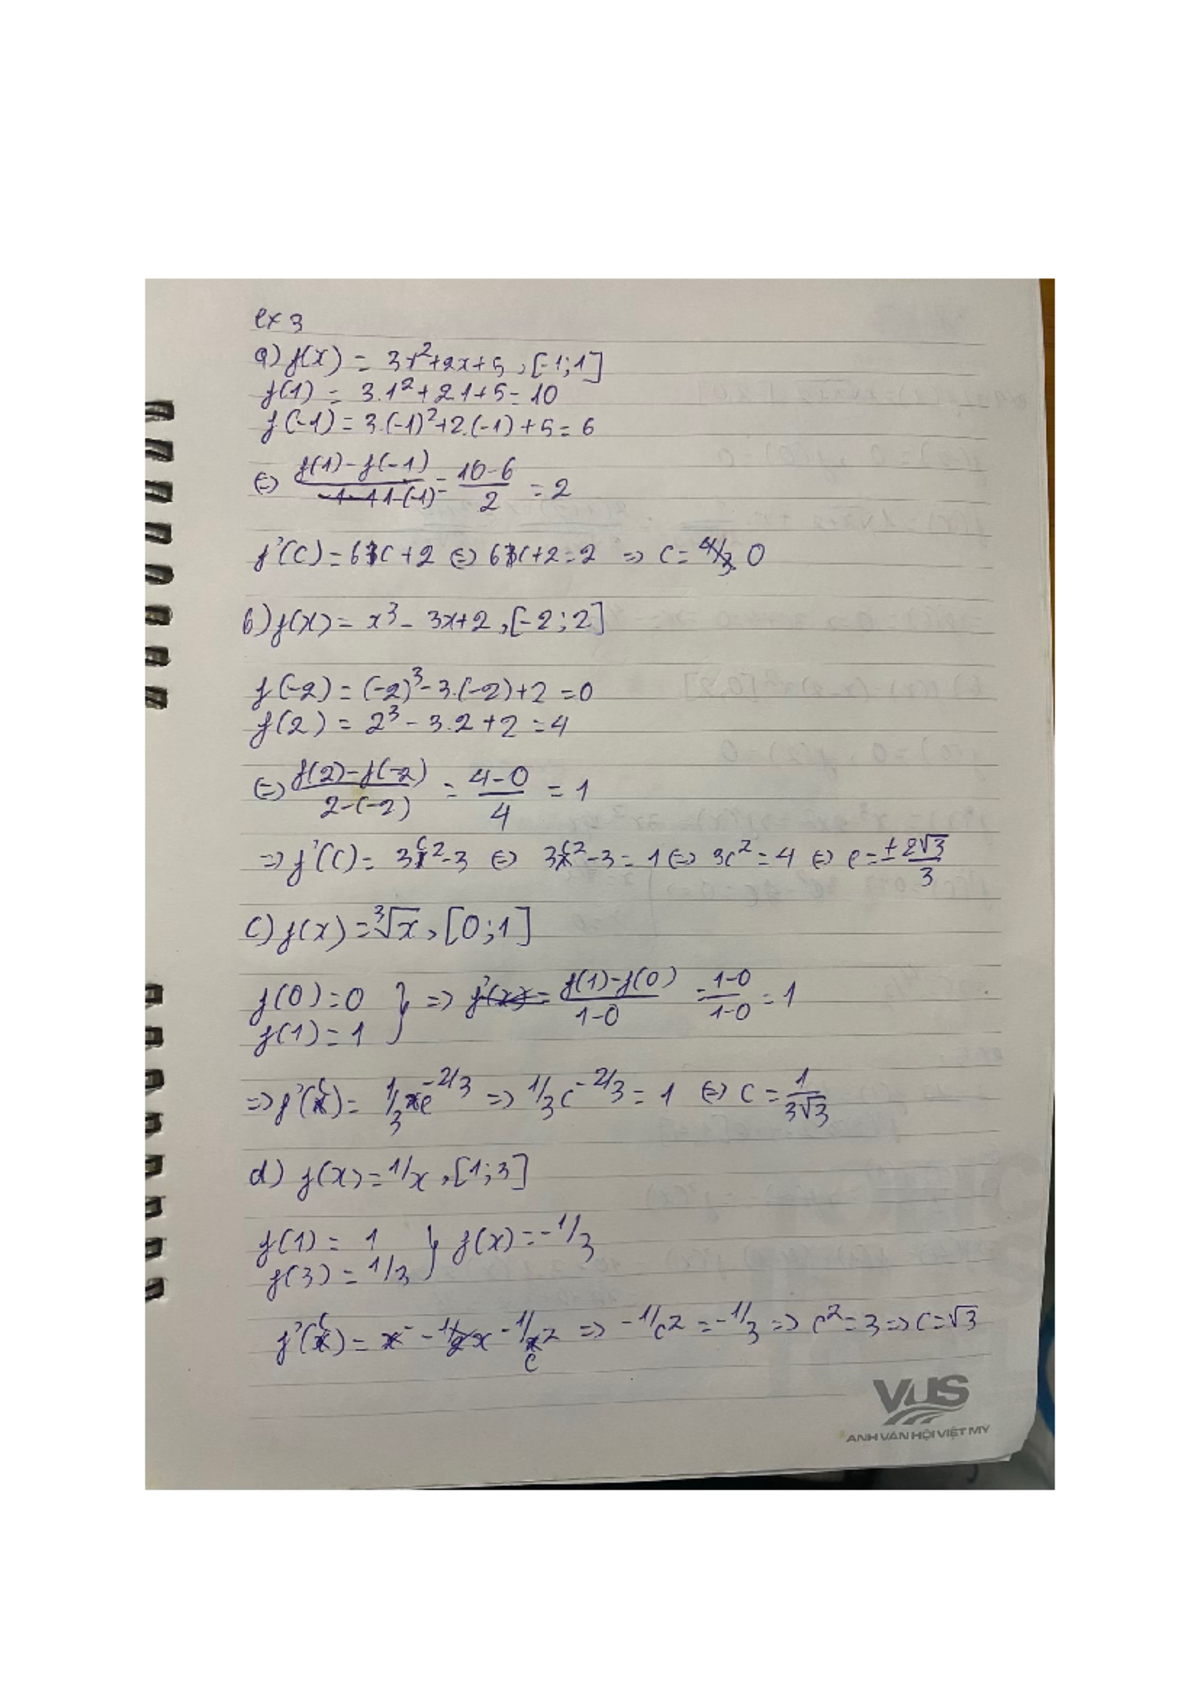 ex 3
a) f(x) = 3x²+2x+5, [-1;1]
f(1) = 3.1²+2.1+5=10
f(-1)=3.(-1)²+2.(-1)+5=6
⇔ f(1)-f(-1) / 1-(-1) = 10-6 / 2 = 2
f'(c)=6c+2 ⇔ 6c+2=2 ⇒ c= 0
b) f(x) = x³- 3x+2, [-2;2]
f(-2) = (-2)³-3.(-2)+2 =0
f(2) = 2³- 3.2+2 =4
⇔ f(2)-f(-2) / 2-(-2) = 4-0 / 4 = 1
⇒ f'(c)= 3c²-3 ⇔ 3c²-3=1 ⇔ 3c²=4 ⇔ c=± 2√3 / 3
c) f(x)=³√x, [0;1]
f(0)=0
f(1)=1 } ⇒ f(1)-f(0) / 1-0 = 1-0 / 1-0 = 1
⇒ f'(c)= 1/3 c^-2/3 ⇒ 1/3 c^-2/3 = 1 ⇔ c = 1 / 3√3
d) f(x)=1/x, [1;3]
f(1)= 1
f(3)=1/3 } f(x)=-1/3
f'(c)= -1/c² ⇒ -1/c² = -1/3 ⇒ c²=3 ⇒ c=√3
VUS
ANH VĂN HỘI VIỆT MỸ